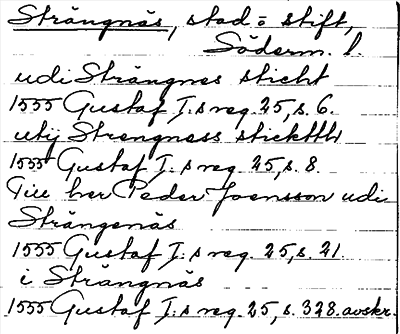 Strängnäs, stad o stift,
Söderm. l.
udi Strängnes sticht
1555 Gustaf I:s reg. 25, s. 6.
utij Strengness stickttt
1555 Gustaf I:s reg. 25, s. 8.
Till her Peder Joensson udi
Strängenäs
1555 Gustaf I:s reg. 25, s. 21.
i Strängnäs
1555 Gustaf I:s reg. 25, s. 328. avskr.